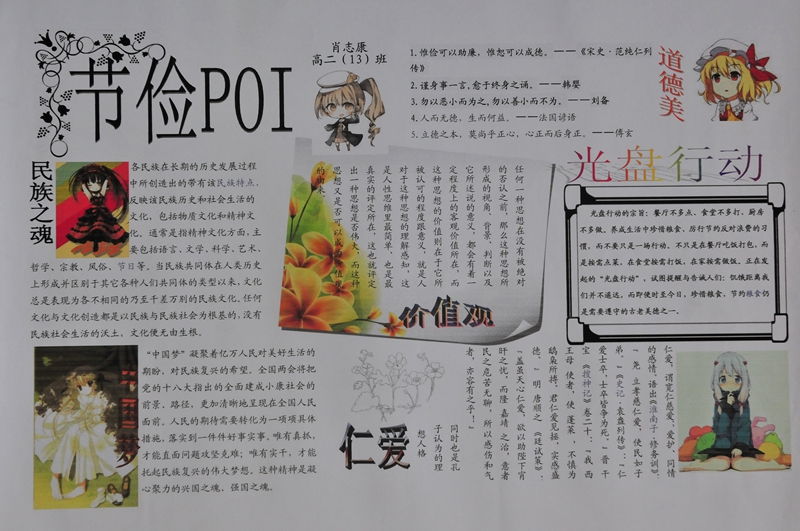 节俭POI
肖志康
高二（13）班
1. 惟俭可以助廉，惟恕可以成德。——《宋史·范纯仁列
传》
2. 谨身事一言，愈于终身之诵。——韩婴
3. 勿以恶小而为之，勿以善小而不为。——刘备
4. 人而无德，生而何益。——法国谚语
5. 立德之本，莫尚乎正心，心正而后身正。——傅玄
道德美
民族之魂
各民族在长期的历史发展过程
中所创造出的带有该民族特点，
反映该民族历史和社会生活的
文化，包括物质文化和精神文
化，通常是指精神文化方面，主
要包括语言、文学、科学、艺术、
哲学、宗教、风俗、节日等。当民族共同体在人类历史
上形成并区别于其它各种人们共同体的类型以来，文化
总是表现为各不相同的乃至千差万别的民族文化，任何
文化与文化创造都是以民族与民族社会为根基的，没有
民族社会生活的沃土，文化便无由生根。
任何一种思想在没有被绝对
的否认之前，那么这种思想所
形成的视角，背景，判断以及
它所述说的意义，都会有着一
定程度上的客观价值所在，而
这种思想的价值则在于它所
被认可的程度跟意义，就是人
对于这种思想的理解感知，这
是人性思维里最简单，也是最
真实的评定所在，这也就评定
出一种思想是否伟大，而这种
思想又是否可以成为价值观
的由来。
价值观
光盘行动
光盘行动的宗旨：餐厅不多点、食堂不多打、厨房
不多做。养成生活中珍惜粮食、厉行节约反对浪费的习
惯，而不要只是一场行动。不只是在餐厅吃饭打包，而
是按需点菜，在食堂按需打饭，在家按需做饭。正在发
起的“光盘行动”，试图提醒与告诫人们：饥饿距离我
们并不遥远，而即便时至今日，珍惜粮食，节约粮食仍
是需要遵守的古老美德之一。
“中国梦”凝聚着亿万人民对美好生活的
期盼、对民族复兴的希望。全国两会将把
党的十八大指出的全面建成小康社会的
前景、路径，更加清晰地呈现在全国人民
面前。人民的期待需要转化为一项项具体
措施，落实到一件件好事实事，唯有真抓，
才能直面问题攻坚克难；唯有实干，才能
托起民族复兴的伟大梦想。这种精神是凝
心聚力的兴国之魂、强国之魂。
仁爱
仁爱，谓宽仁慈爱，爱护、同情
的感情，语出《淮南子·修务训》：
“尧 立孝慈仁爱，使民如子
弟。”《史记·袁盎列传》：“仁
爱士卒，士卒皆争为死。”晋 干
宝《搜神记》卷二十：“我 西
王母 使者，使 蓬莱，不慎为
鸱枭所搏，君仁爱见拯，实感盛
德。”明 唐顺之《廷试策》：
“盖虽天心仁爱，欲以助陛下宵
旰之忧，而隆 嘉靖 之治，意者
民之危苦无聊，所以感伤和气
者，亦容有之乎！”
同时也是孔
子认为的理
想人格